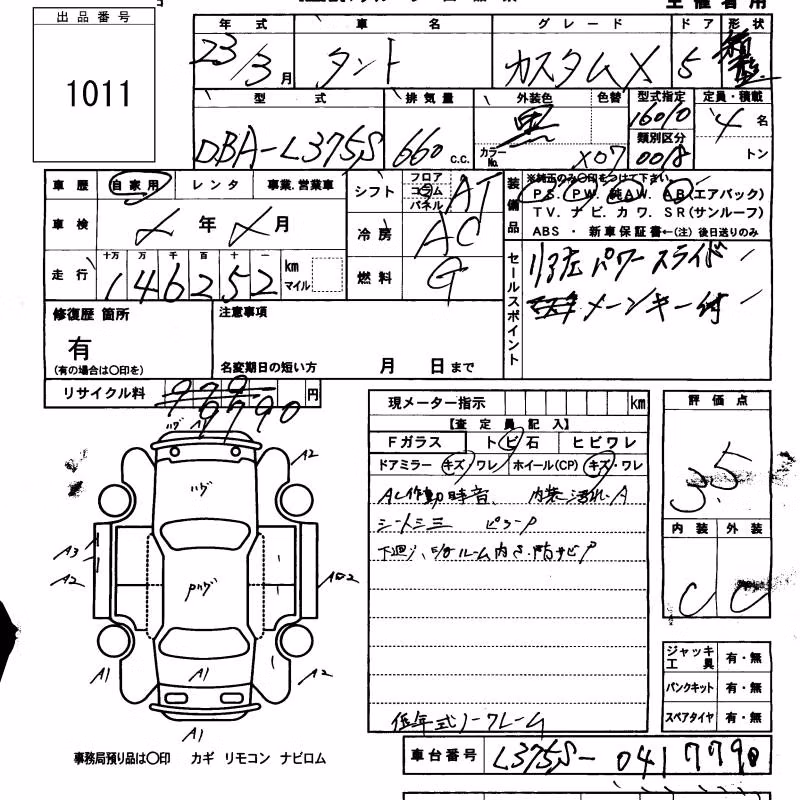 出品番号
1011
年式 車名 グレード ドア 形状
23/3月 タント カスタムX 5
型式 排気量 外装色 色替 型式指定 定員・積載
DBA-L375S 660 C.C. 黒 カラーNo. X07 16010 類別区分 0018 4名 トン
車歴 自家用 レンタ 事業.営業車
シフト フロア コラム パネル AT
装備品 ※純正のみ〇印をつけて下さい。
PS. PW. 純AW. AB(エアバック)
TV. ナビ. カワ. SR(サンルーフ)
ABS ・ 新車保証書←(注) 後日送りのみ
車検 年 月
冷房 AC
走行 十万 万 千 百 十 一
146252 km マイル
燃料 G
セールスポイント
リア左パワースライド
メーンキー付
修復歴 箇所
有
(有の場合は〇印を)
注意事項
名変期日の短い方 月 日まで
リサイクル料 9790 円
現メーター指示 km
【査定員記入】
Fガラス トビ石 ヒビワレ
ドアミラー キズ・ワレ ホイール(CP) キズ・ワレ
AC作動時音、 内装汚れ・A
シートシミ
下廻り、E/gルーム内サ.防サビP
低年式ノークレーム
評価点
3.5
内装 外装
C C
ジャッキ工具 有・無
パンクキット 有・無
スペアタイヤ 有・無
ハゲ A1
A2
ハゲ
A3
A2
Pハゲ
A1
A1
A2
A1
事務局預り品は〇印 カギ リモコン ナビロム
車台番号 L375S- 0417790